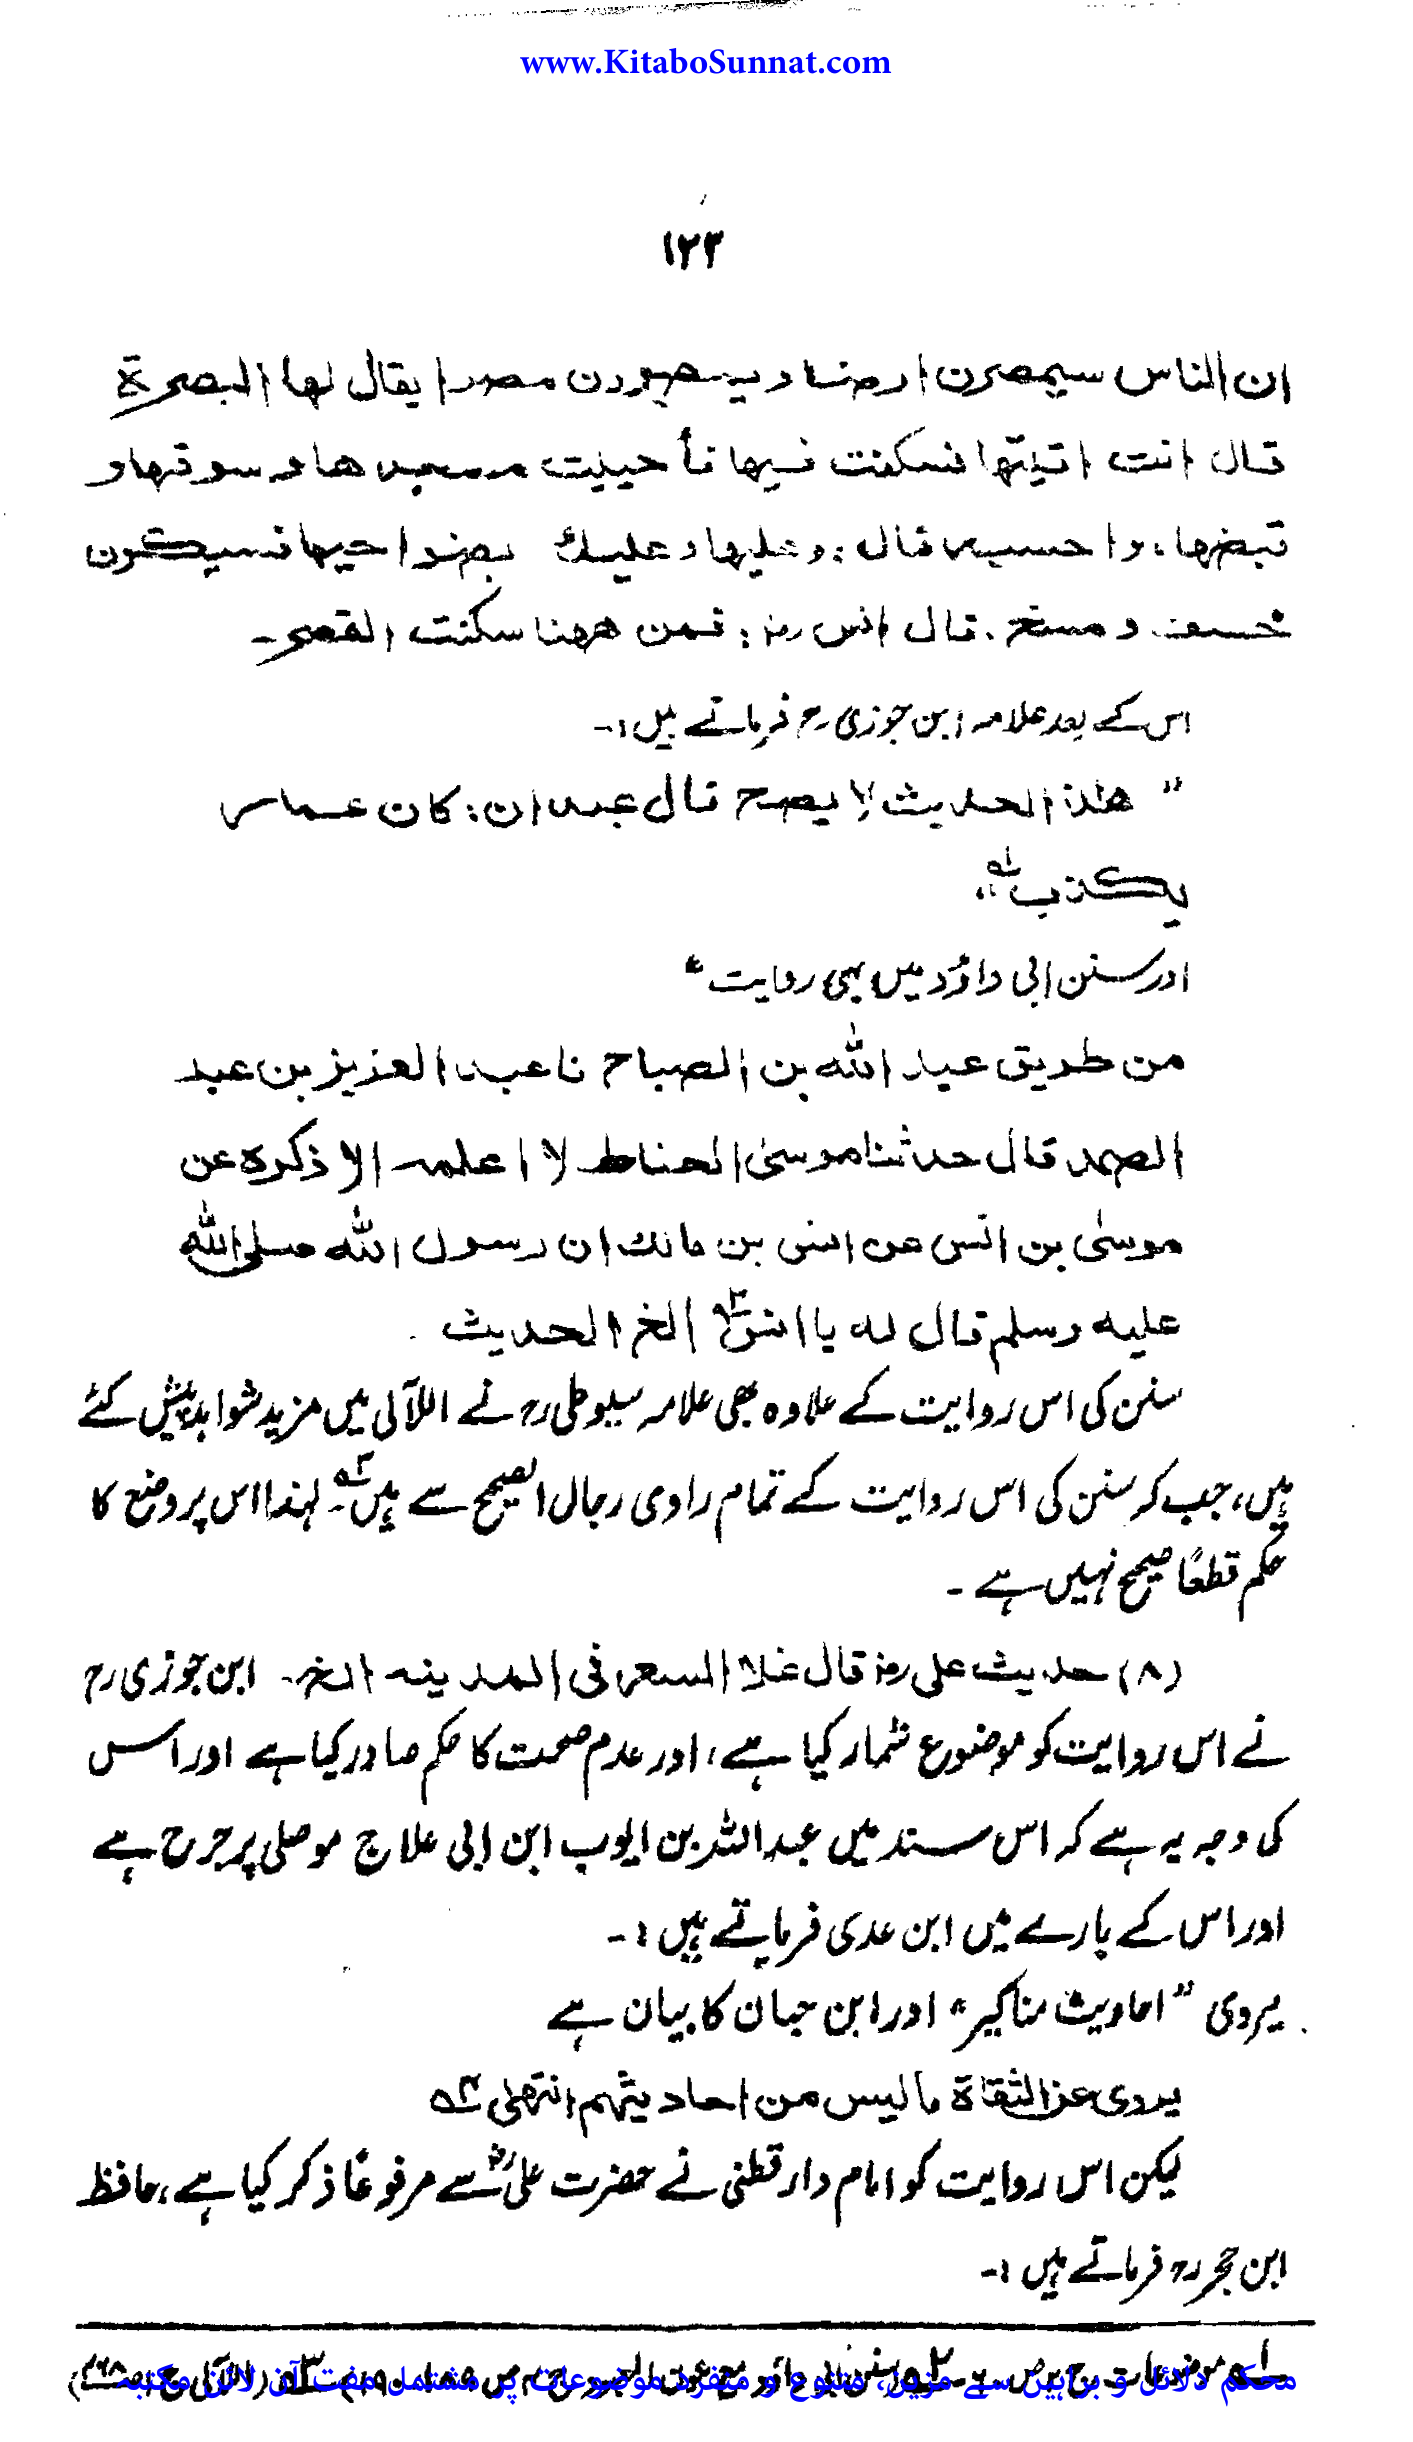 www.KitaboSunnat.com
۱۲۳
ان الناس سیمصرن ارضا و یمصرون مصرا یقال لها البصرة
قال انت اتیتها فسکنت فیها فأ حییت مسجد ها و سو قها و
قبضها، وا حسبه قال: و علیها و علیك بضوا حیها فسیکون
خسف و مسخ. قال انس رض: فمن ههنا سکنت القصر۔
اس کے بعد علامہ ابن جوزی رح فرماتے ہیں:۔
" هٰذ الحدیث لا یصح قال عبدان: کان عمار
یکذب"
اور سنن ابی داؤد میں بھی روایت
من طریق عبد الله بن الصباح نا عبد العزیز بن عبد
الصمد قال حدثنا موسیٰ الحناط لا اعلمه الا ذکره عن
موسیٰ بن انس عن انس بن مالك ان رسول الله صلی الله
علیه وسلم قال له یا انس الخ الحدیث ۔
سنن کی اس روایت کے علاوہ بھی علامہ سیوطی رح نے اللآلی میں مزید شواہد پیش کئے
ہیں، جب کہ سنن کی اس روایت کے تمام راوی رجال الصحیح سے ہیں۔ لہٰذا اس پر وضع کا
حکم قطعًا صحیح نہیں ہے ۔
(۸) حدیث علی رض قال غلا السعر فی المدینه الخ۔ ابن جوزی رح
نے اس روایت کو موضوع شمار کیا ہے، اور عدم صحت کا حکم صادر کیا ہے اور اس
کی وجہ یہ ہے کہ اس سند میں عبداللہ بن ایوب ابن ابی علاج موصلی پر جرح ہے
اور اس کے بارے میں ابن عدی فرماتے ہیں:۔
یروی " احادیث مناکیر" اور ابن حبان کا بیان ہے
یروی عن الثقاة ما لیس من احادیثهم انتهیٰ ۴ه
لیکن اس روایت کو امام دارقطنی نے حضرت علیؓ سے مرفوعًا ذکر کیا ہے، حافظ
ابن حجر رح فرماتے ہیں:۔
محکم دلائل و براہین سے مزین، متنوع و منفرد موضوعات پر مشتمل مفت آن لائن مکتبہ